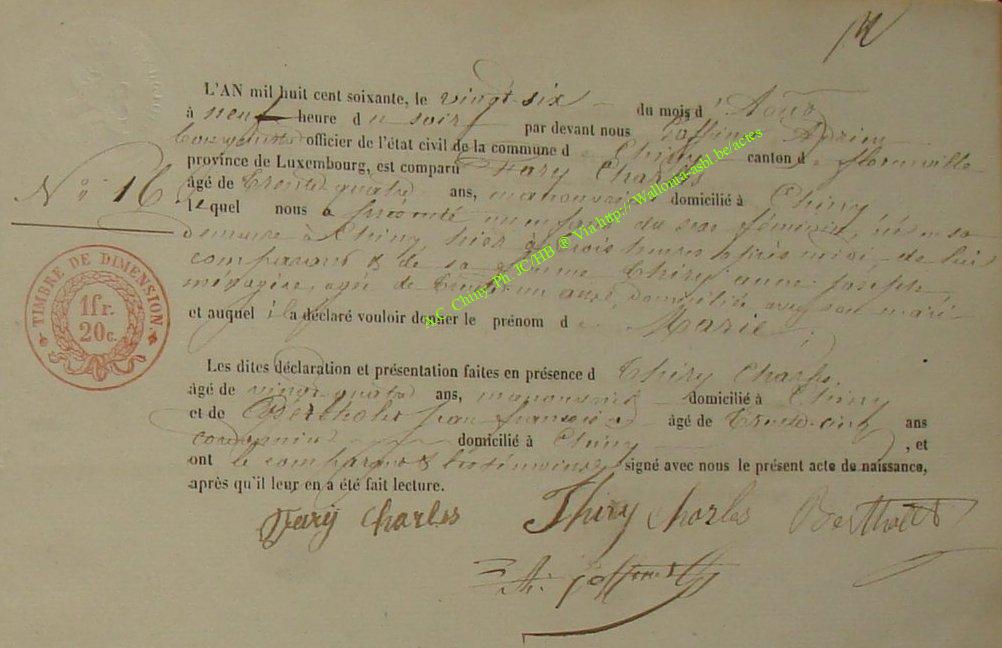 14
L'AN mil huit cent soixante, le vingt-six du mois d'Août
à neuf heure du soir par devant nous Goffinet Adrien
Bourgmestre officier de l'état civil de la commune de Chiny canton de Florenville
province de Luxembourg, est comparu Fary Charles
N° 16
âgé de trente quatre ans, manouvrier domicilié à Chiny
lequel nous a présenté un enfant du sexe féminin, né en sa
demeure à Chiny, hier à trois heures après midi, de lui
comparant & de sa femme Thiry anne Joseph
ménagère, agée de trente un ans, domiciliée avec son mari
et auquel il a déclaré vouloir donner le prénom de Marie
TIMBRE DE DIMENSION.
1 fr.
20 c.
Les dites déclaration et présentation faites en présence d Thiry Charles
âgé de vingt quatre ans, manouvrier domicilié à Chiny
et de Bertholet jean françois âgé de trente-cinq ans
cordonnier domicilié à Chiny , et
ont le comparant & les témoins signé avec nous le présent acte de naissance,
après qu'il leur en a été fait lecture.
Fary Charles Thiry Charles
A. Goffinet
A.C. Chiny Ph. JC/HB ® Via http://Wallonia-asbl.be/actes